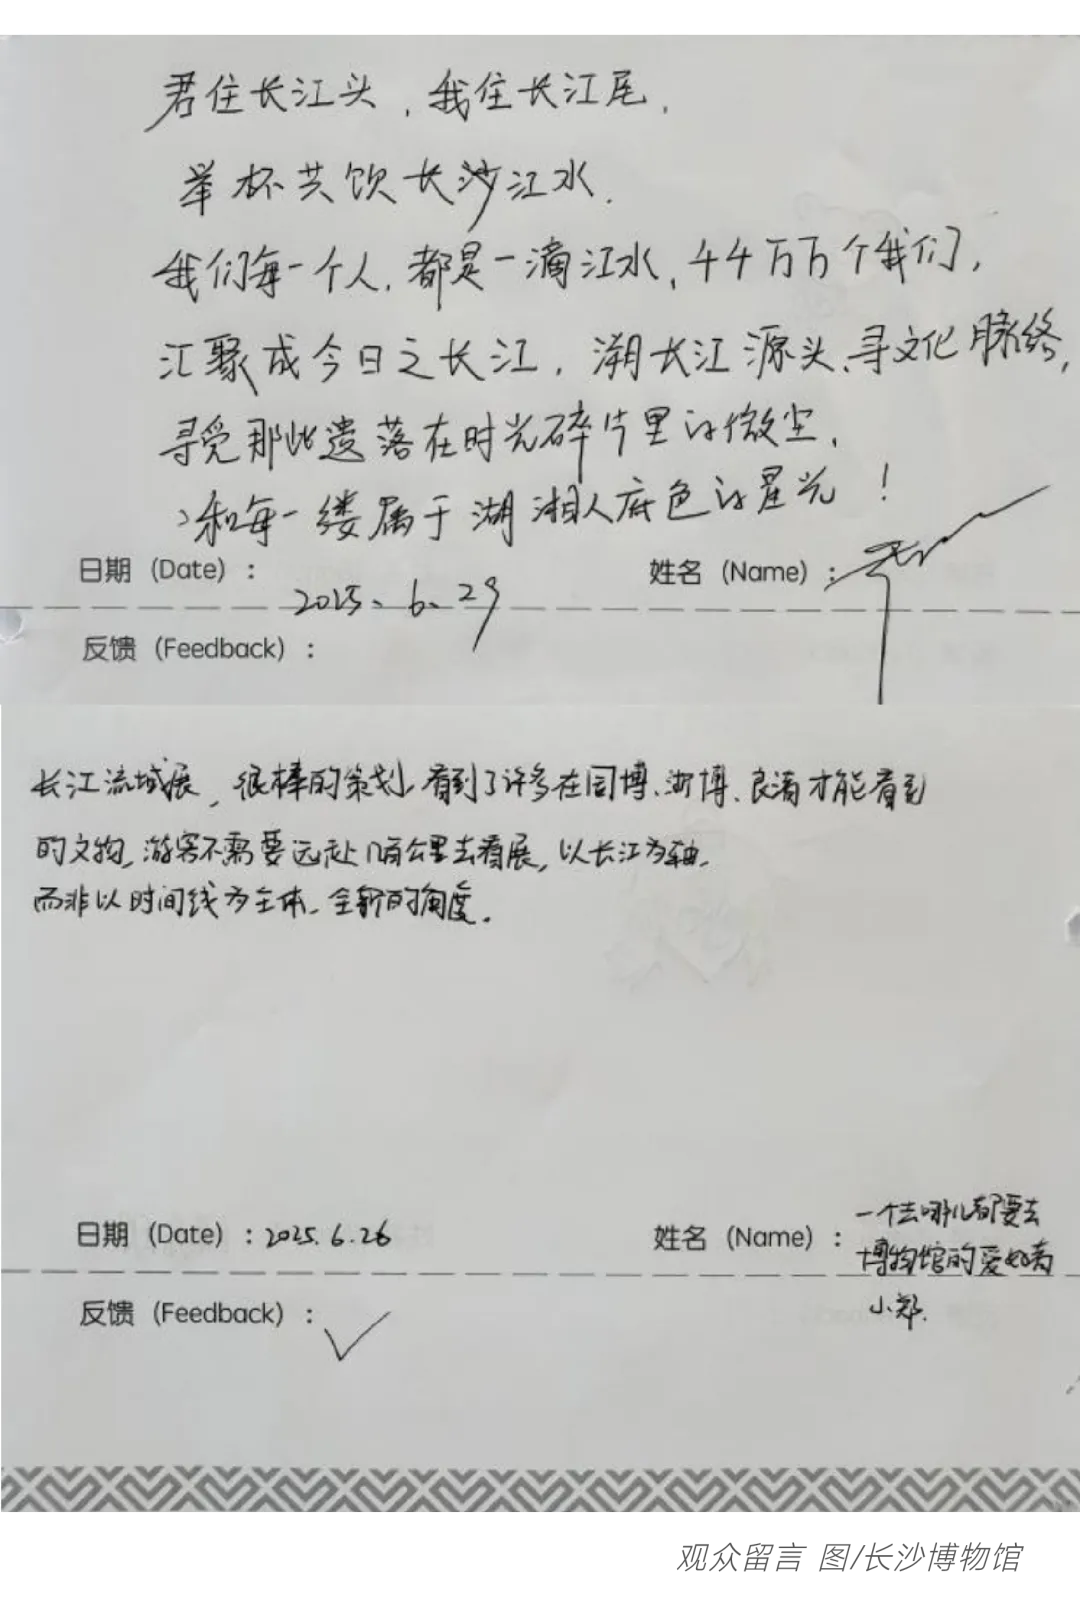 君住长江头，我住长江尾，
举杯共饮长沙江水.
我们每一个人，都是一滴江水，44万万个我们，
汇聚成今日之长江，溯长江源头、寻文化脉络，
寻觅那些遗落在时光碎片里的微尘，
和每一缕属于湖湘人底色的星光！
日期（Date）：2025、6、29
姓名（Name）：
反馈（Feedback）：
长江流域展，很棒的策划，看到了许多在国博、浙博、良渚才能看到
的文物，游客不需要远赴几百公里去看展，以长江为轴，
而非以时间线为主体，全新的角度。
日期（Date）：2025.6.26
姓名（Name）：一个去哪儿都要去
博物馆的爱好者
小郑.
反馈（Feedback）：
观众留言 图/长沙博物馆